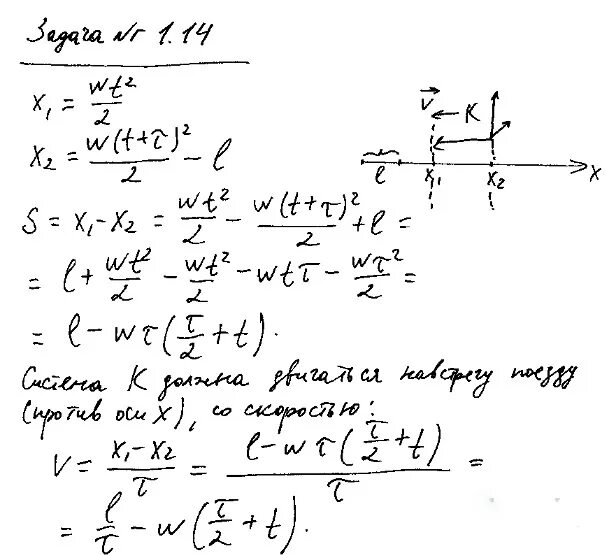 Задача № 1.14
x₁ = wt²/2
x₂ = w(t+τ)²/2 − l
v⃗ K
l x₁ x₂ x
S = x₁ − x₂ = wt²/2 − w(t+τ)²/2 + l =
= l + wt²/2 − wt²/2 − wtτ − wτ²/2 =
= l − wτ(τ/2 + t).
Система K должна двигаться навстречу поезду
(против оси x), со скоростью:
V = (x₁ − x₂)/τ = (l − wτ(τ/2 + t))/τ =
= l/τ − w(τ/2 + t).